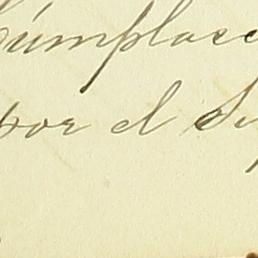 Cúmplase
por el Su